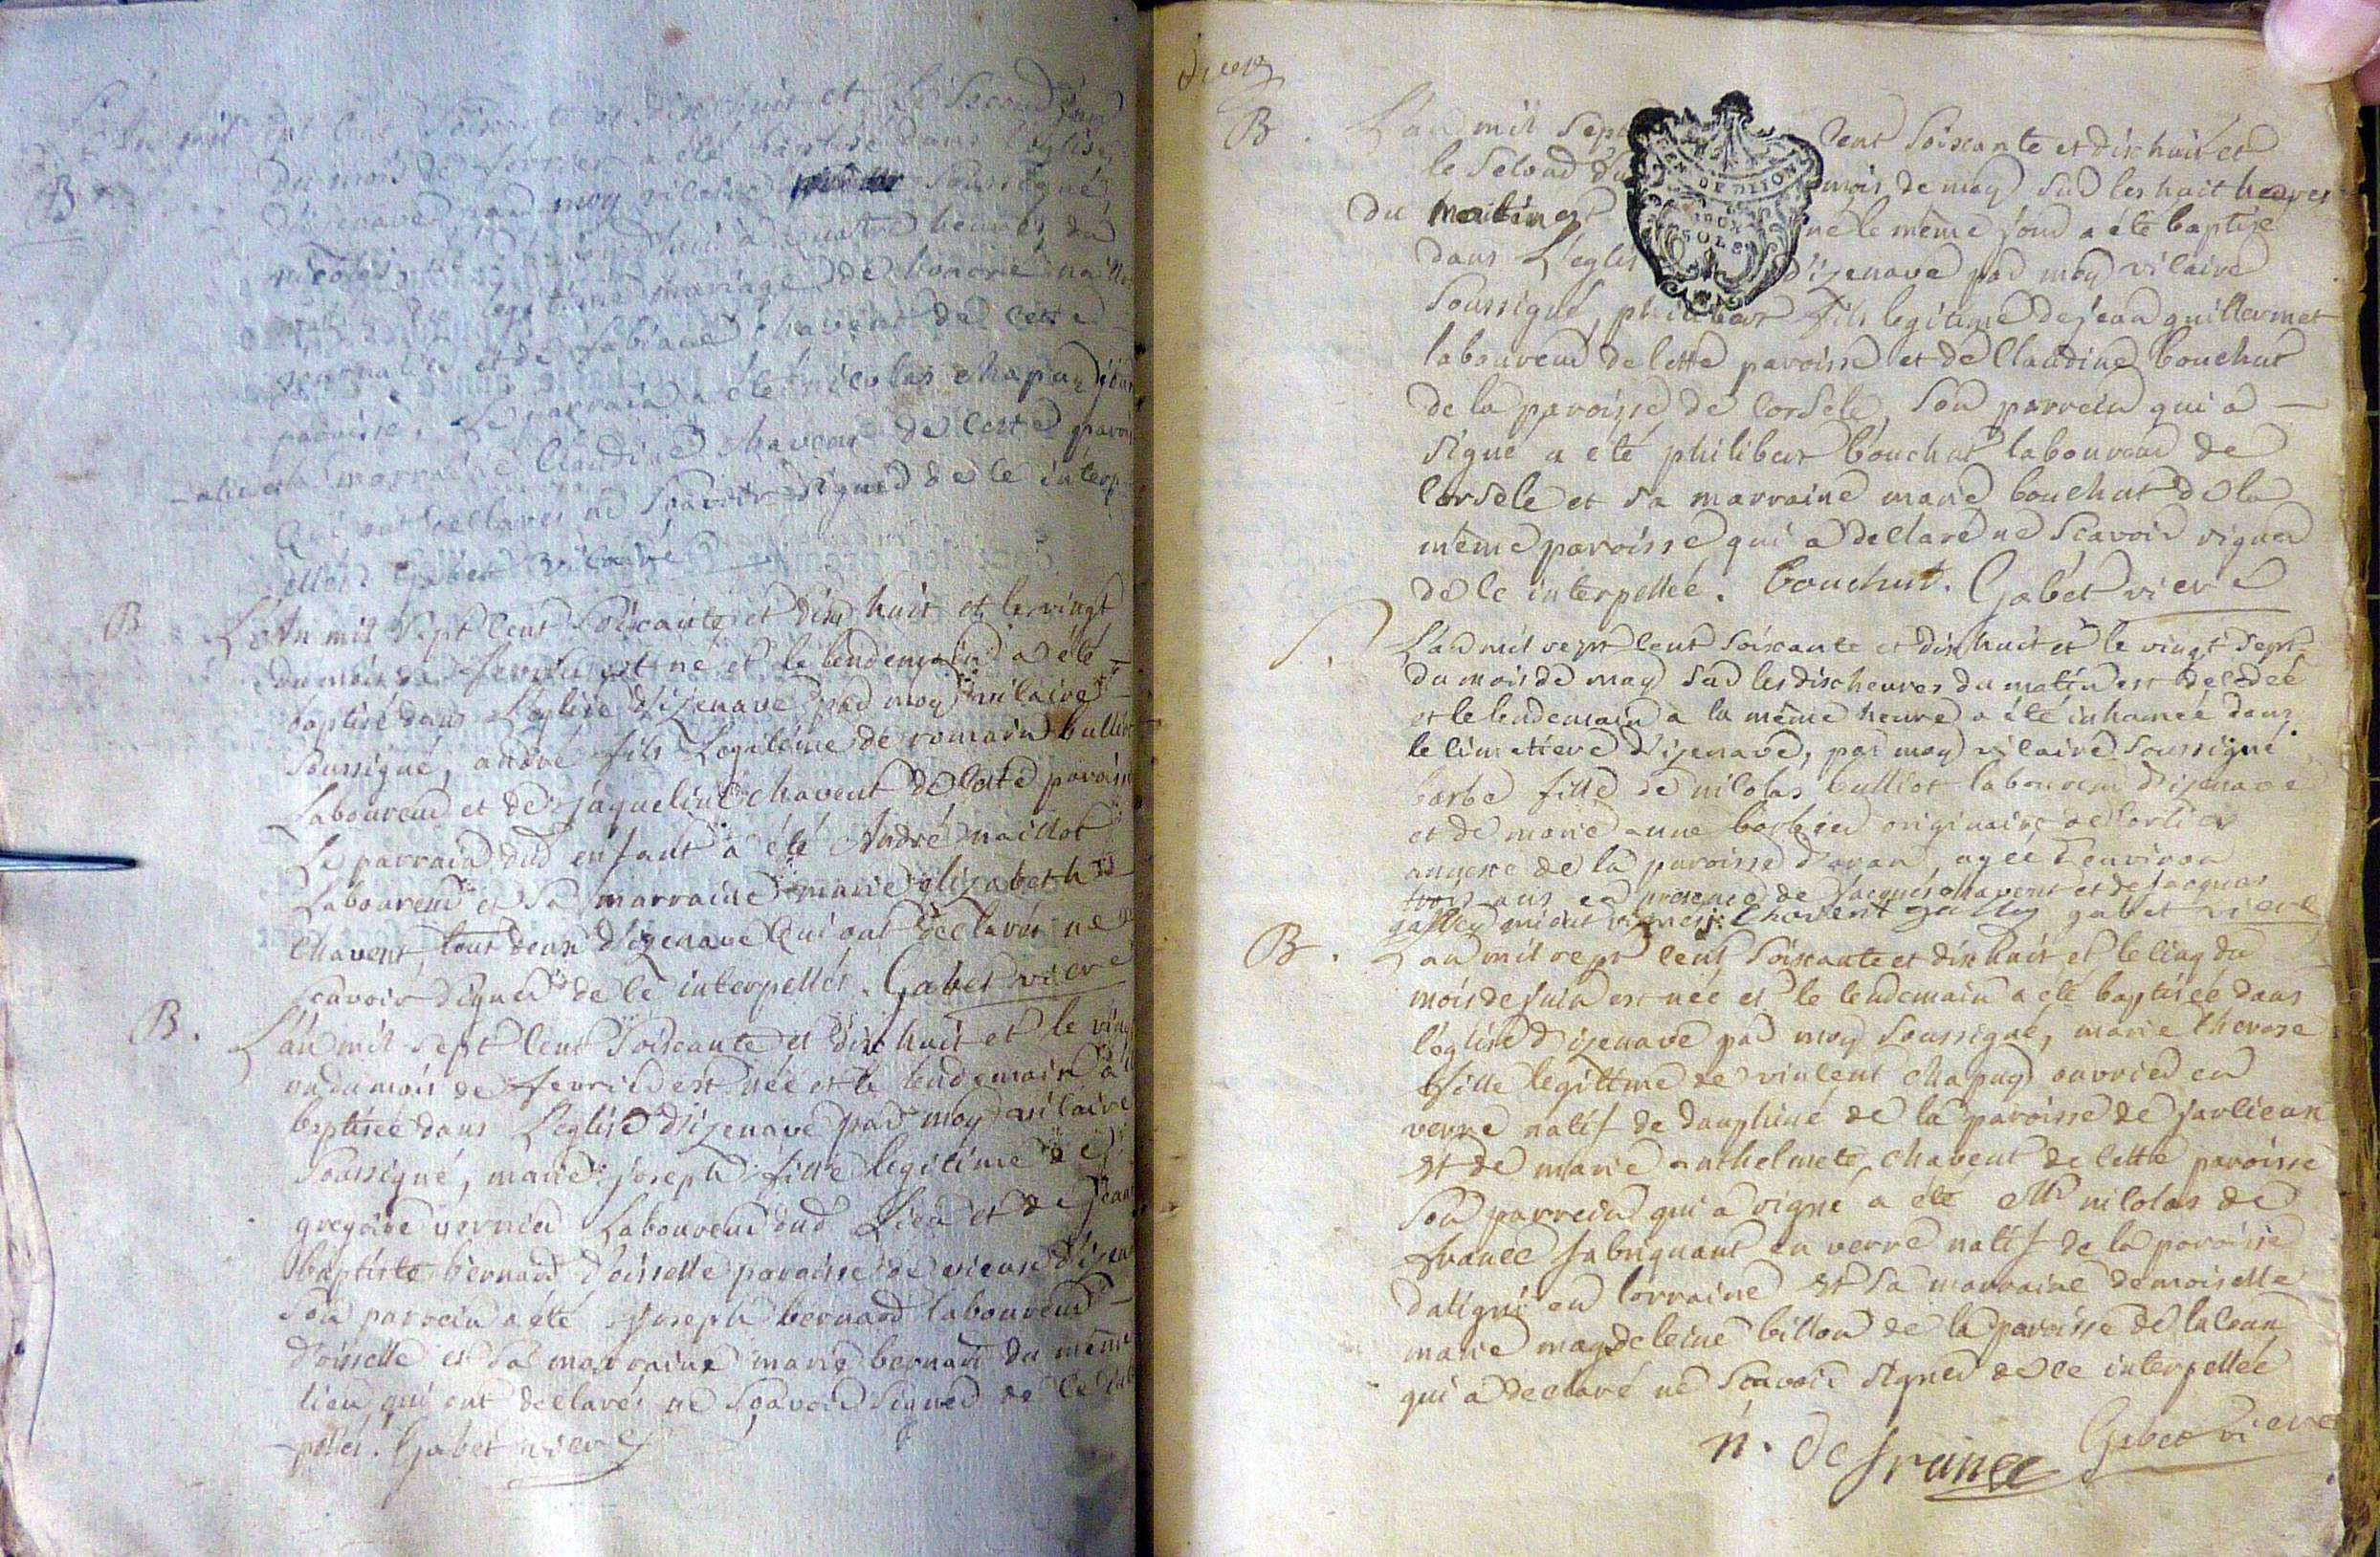 B
L'An mil sept cent soixante et dix huit et le second jour
du mois de fevrier a été baptisé dans l'église
d'izenave par moy vicaire soussigné,
nicolas, à quatre heures du
legitime mariage de honoré
journalier et de fabiane chavent de cette
paroisse. Le parrain a été nicolas chapuy jour
-alier et la marraine Claudine chavent de cette paroi
Qui ont declarés ne sçavoir signer de ce interp
ellés. Gabet vicaire
B
L'An mil sept cent soixante et dix huit et le vingt
du mois de fevrier est né et le lendemain a été
baptisé dans l'église d'izenave par moy vicaire
soussigné, andré fils legitime de romain bulliot
Laboureur et de jaqueline chavent de cette paroisse
Le parrain dud enfant a été André maillot
Laboureur et sa marraine marie elizabeth
chavent, tout deux d'izenave qui ont declarés ne
scavoir signer de ce interpellés. Gabet vicre
B.
L'an mil sept cent soixante et dix huit et le ving
un du mois de fevrier est née et le lendemain a
baptisée dans l'eglise d'izenave par moy vicaire
soussigné, marie joseph fille legitime de
gregoire vernier Laboureur dud Lieu et de jean
baptiste bernard d'oisselle paroisse de vieux d'izen
son parrein a été joseph bernard laboureur
d'oisselle et sa marraine marie bernard du même
lieu, qui ont declarés ne sçavoir signer de ce int
pellés. Gabet vicre
B.
L'an mil sept cent soixante et dix huit et
le second du mois de may sur les huit heures
du matin est né le même jour a été baptisé
dans L'eglis d'izenave par moy vicaire
soussigné, philibert fils legitime de jean guillermet
laboureur de cette paroisse et de Claudine bouchut
de la paroisse de corsele, son parrein qui a
signé a été philibert bouchut laboureur de
corsele et sa marraine marie bouchut de la
même paroisse qui a declaré ne scavoir signer
de ce interpellée. bouchut. Gabet vicre
S.
L'an mil sept cent soixante et dix huit et le vingt sept
du mois de may sur les dix heures du matin est décédée
et le lendemain a la même heure a été inhumée dans
le cimetiere d'izenave, par moy vicaire soussigné
barbe fille de nicolas bulliot laboureur d'izenave
et de marie anne barbier originaire de corlier
annexe de la paroisse d'aran, agée d'environ
trois ans en presence de jacques chavent et de jacques
galley qui ont signés. Chavent galley gabet vicre
B.
L'an mil sept cent soixante et dix huit et le cinq du
mois de juin est née et le lendemain a été baptisée dans
l'église d'izenave par moy soussigné, marie therese
fille legitime de vincent chapuy ouvrier en
verre natif de dauphiné de la paroisse de jarlieux
et de marie anthelmete chavent de cette paroisse
son parrein qui a signé a été Mr nicolas de
france fabriquant en verre natif de la paroisse
datigni en lorraine et sa marraine demoiselle
marie magdeleine billon de la paroisse de lalean
qui a declaré ne scavoir signer de ce interpellée
n. de france Gabet vicre